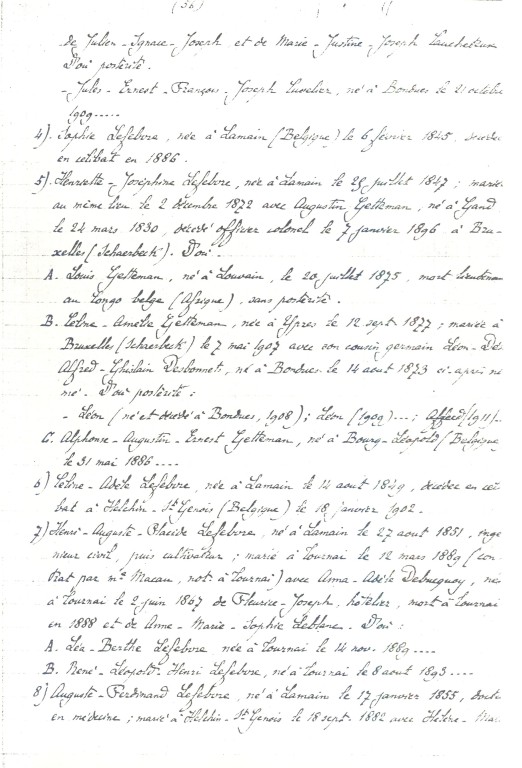 (56)
de Julien-Ignace-Joseph et de Marie-Justine-Joseph
D'où postérité.
- Jules-Ernest-François-Joseph Cuvelier, né à Bondues le 21 octobre
1909.....
4). Sophie Lefebvre, née à Lamain (Belgique) le 6 février 1845, décédée
en célibat en 1886.
5). Henriette-Joséphine Lefebvre, née à Lamain le 25 juillet 1847; mariée
au même lieu le 2 décembre 1872 avec Augustin Getteman, né à Gand
le 24 mars 1830, décédé officier colonel le 7 janvier 1896 à Bru-
xelles (Schaerbeck). D'où.
A. Louis Getteman, né à Louvain, le 20 juillet 1875, mort lieutenant
au Congo belge (Afrique), sans postérité.
B. Céline-Amélie Getteman, née à Ypres le 12 sept. 1877; mariée à
Bruxelles (Schaerbeck) le 7 mai 1907 avec son cousin germain Léon-Dés
Alfred-Ghislain Desbonnet, né à Bondues le 14 aout 1873 ci-après no
mé. D'où postérité:
- Léon (né et décédé à Bondues, 1908); Léon (1909)---; Alfred (1911)--
C. Alphonse-Augustin-Ernest Getteman, né à Bourg-Léopold (Belgique
le 31 mai 1886----
6) Céline-Adèle Lefebvre, née à Lamain le 14 aout 1849, décédée en céli
bat à Helchin-St Genois (Belgique) le 18 janvier 1902.
7) Henri-Auguste-Placide Lefebvre, né à Lamain le 27 aout 1851, ingé
nieur civil, puis cultivateur; marié à Tournai le 12 mars 1889 (con-
trat par me Macau, not. à Tournai) avec Anna-Adèle Debucquoy, née
à Tournai le 2 juin 1867 de Fleurice-Joseph, hôtelier, mort à Tournai
en 1888 et de Anne-Marie-Sophie Leblanc. D'où:
A. Léa-Berthe Lefebvre, née à Tournai le 14 nov. 1889----
B. René-Léopold-Henri Lefebvre, né à Tournai le 8 aout 1893----
8) Auguste-Ferdinand Lefebvre, né à Lamain le 17 janvier 1855, docte
en médecine; marié à Helchin-St Genois le 18 sept. 1882 avec Hélène-Mar